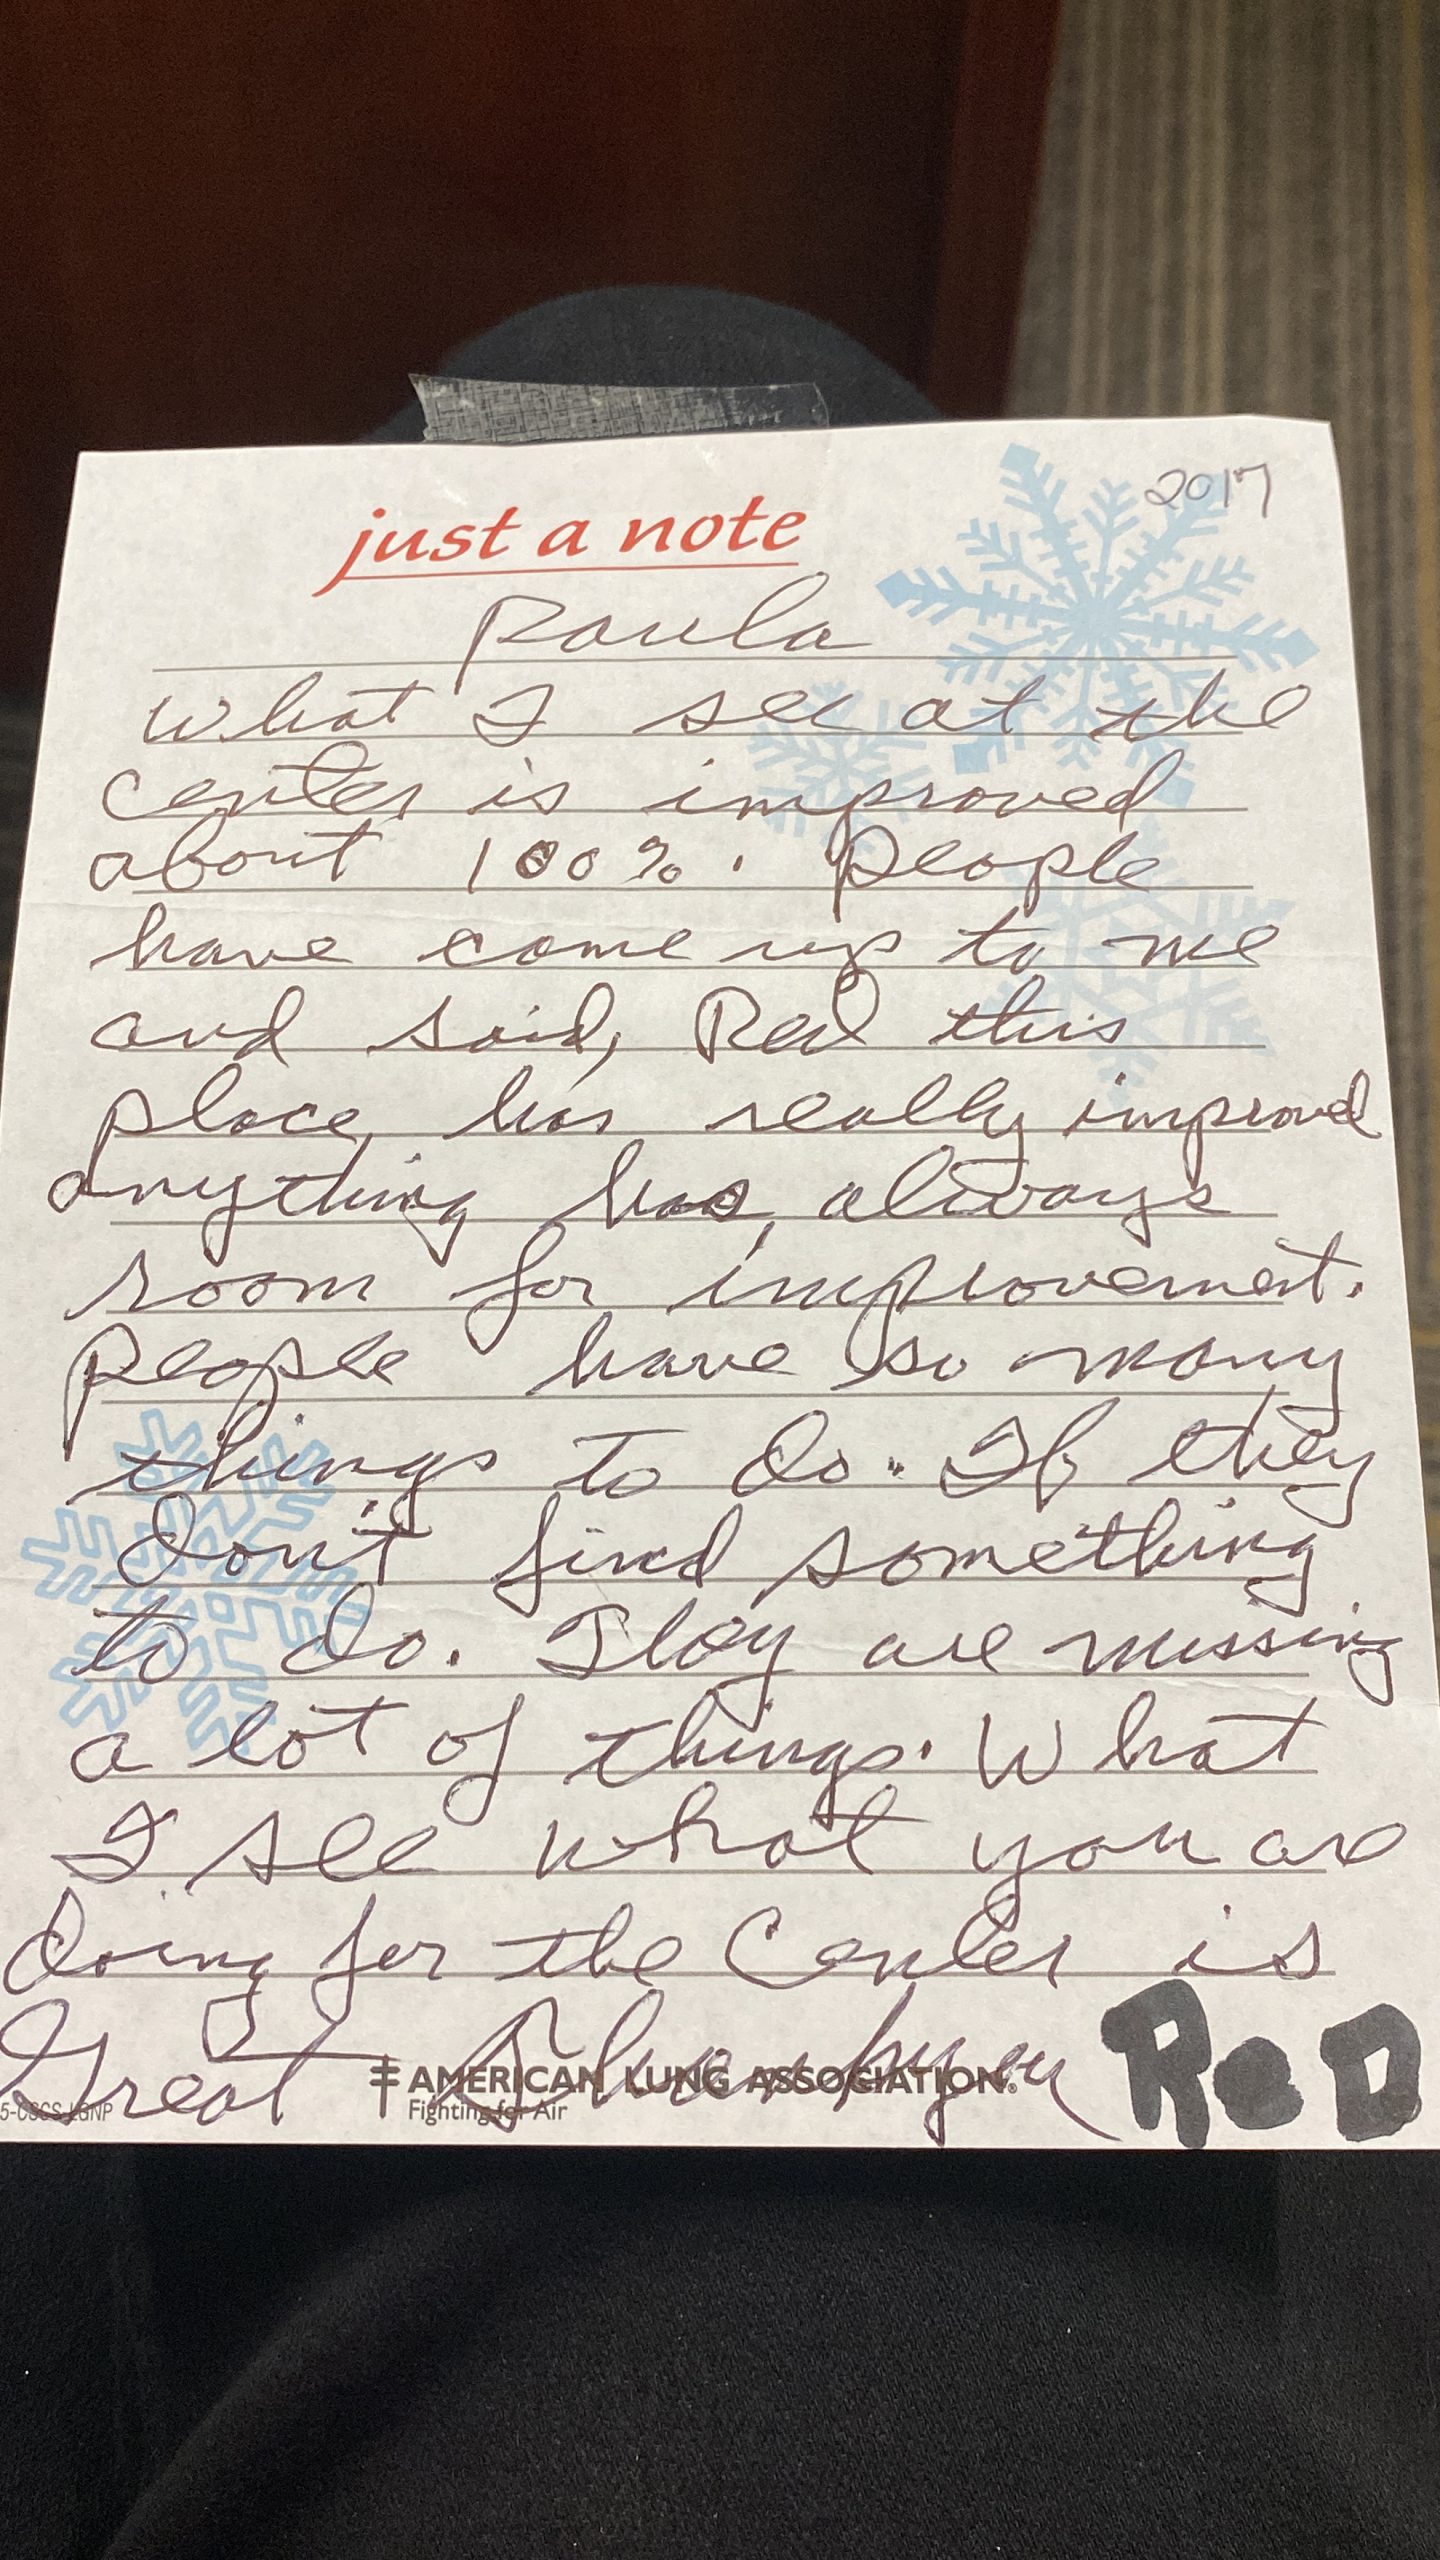 2017
just a note
Paula
What I see at the
center is improved
about 100%. People
have come up to me
and said, Red this
place, has really improved
Anything has, always
room for improvement.
People have so many
things to do. If they
don't find something
to do. They are missing
a lot of things. What
I see what you are
doing for the Center is
Great Thank you ReD
AMERICAN LUNG ASSOCIATION®
Fighting for Air